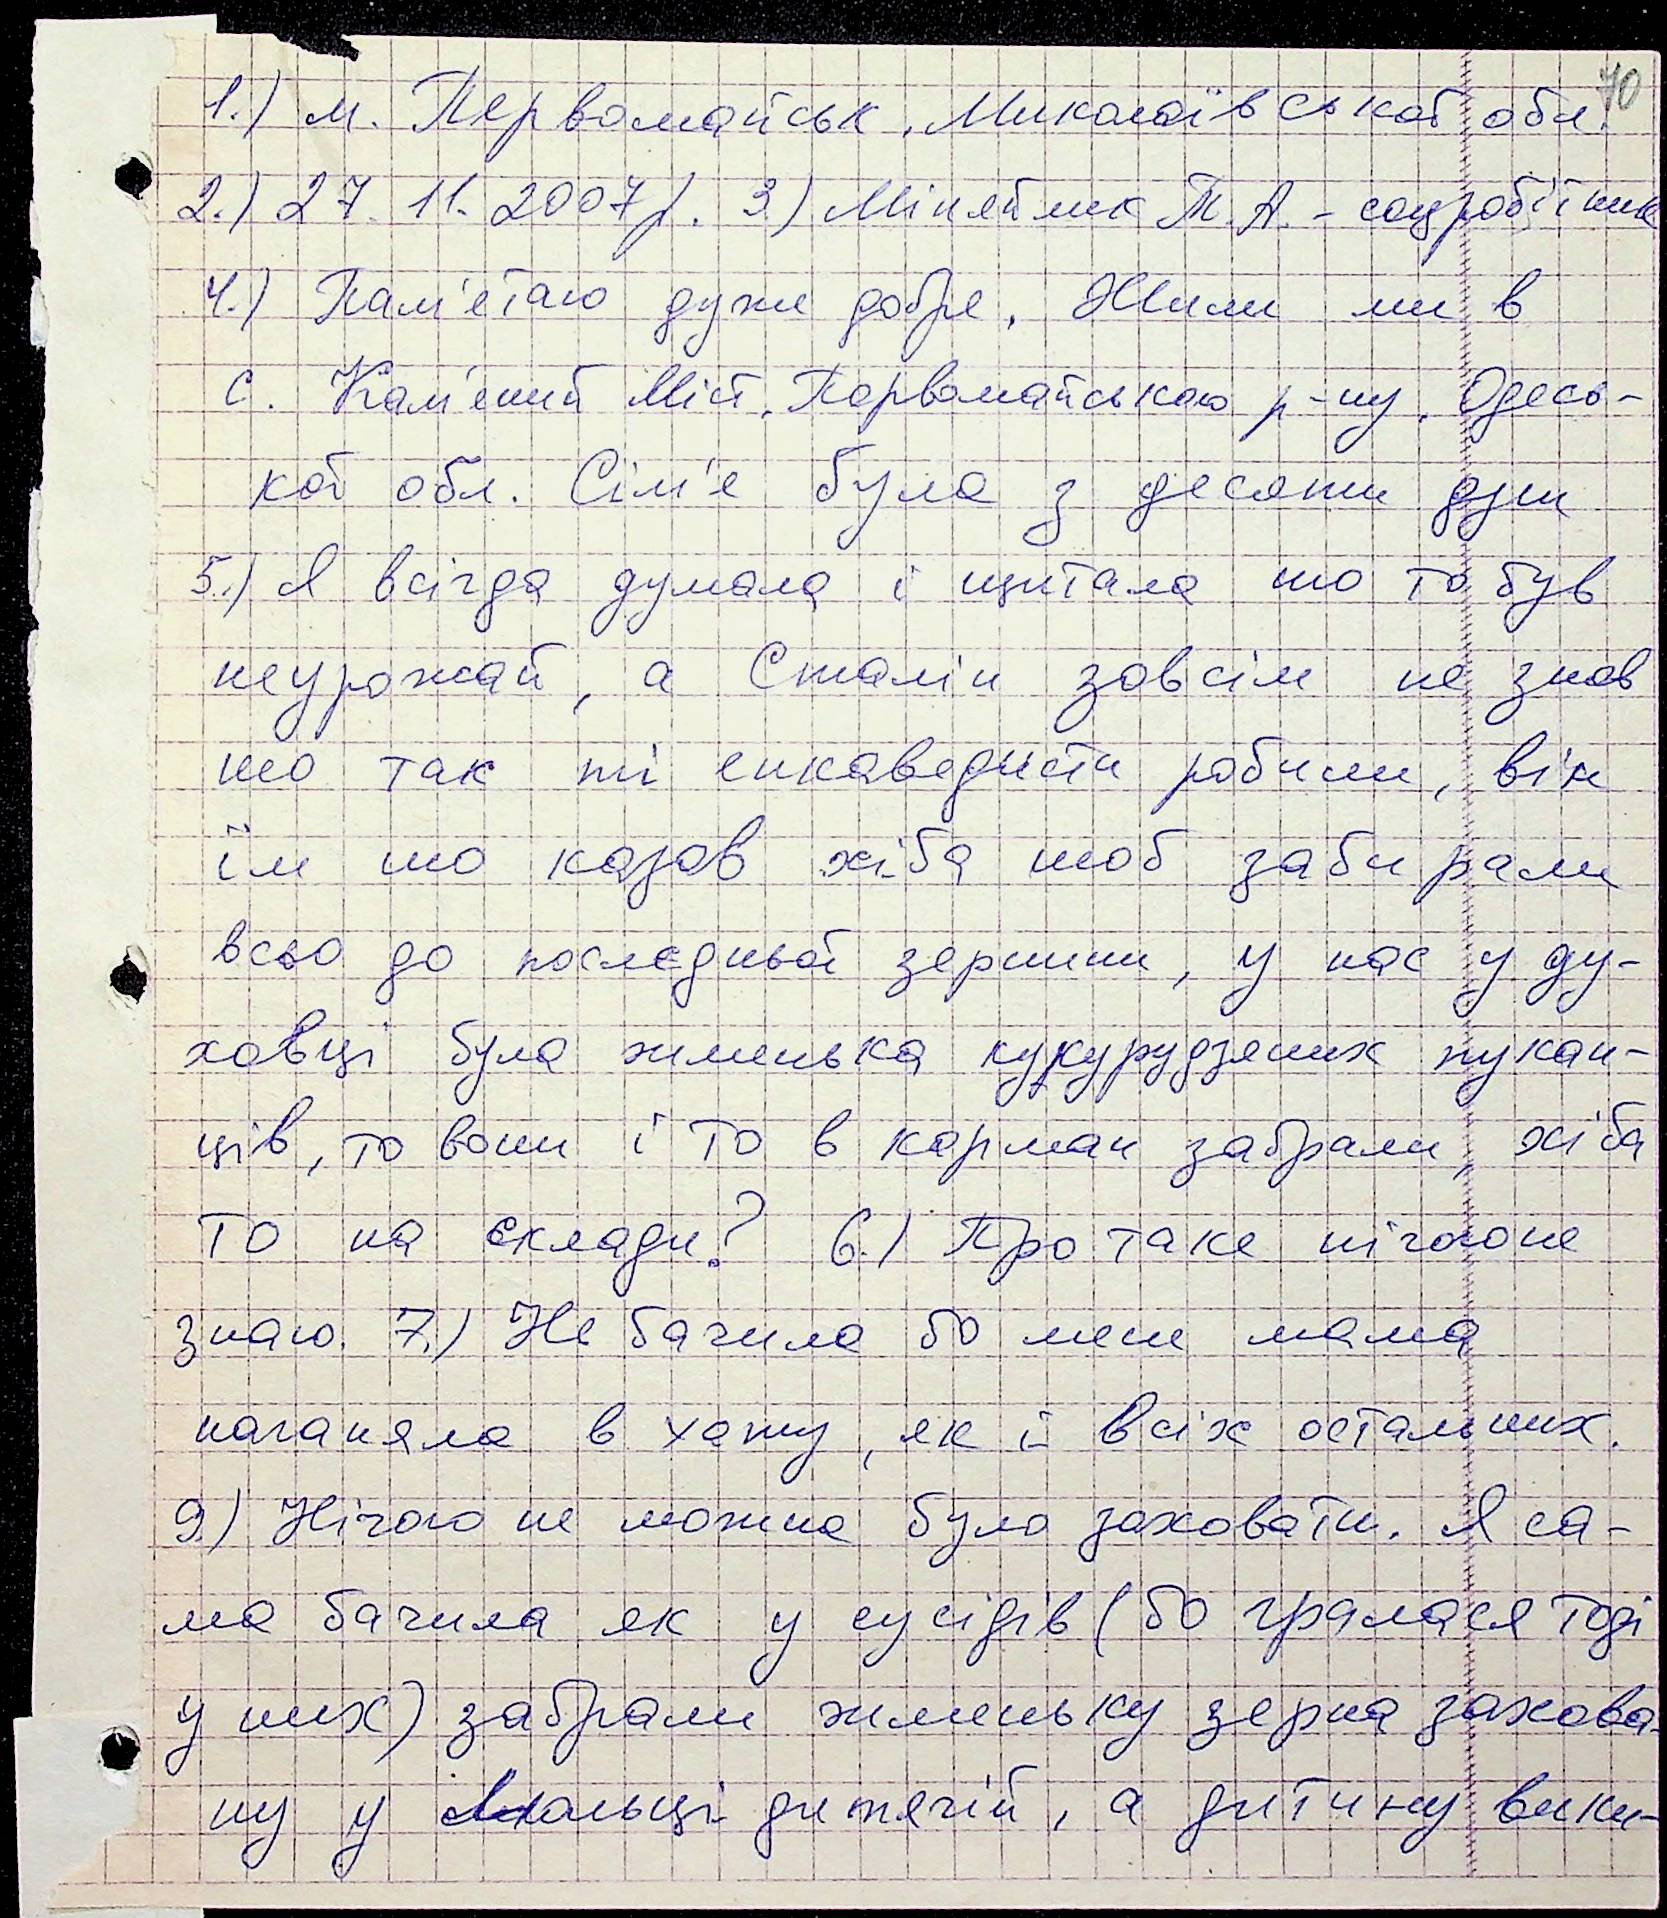 70
1.) м. Первомайськ, Миколаївської обл.
2.) 27. 11. 2007р. 3.) Міняйлик Т.А. – соцробітник
4.) Пам'етаю дуже добре. Жили ми в
с. Кам'яний Міст, Первомайського р-ну, Одесь-
кої обл. Сім'я була з десяти душ
5.) Я всігда думала і щитала шо то був
неурожай, а Сталін зовсім не знав
шо так ті енкаведисти робили, він
їм шо казав хіба шоб забирали
всьо до послєдньої зернини, у нас у ду-
ховці була жменька кукурудзяних пукан-
ців, то вони і то в карман забрали, хіба
то на склади? 6.) Про таке нічого не
знаю. 7.) Не бачила бо мене мама
наганяла в хату, як і всіх остальних.
9.) Нічого не можна було заховати. Я са-
ма бачила як у сусідів (бо гралася тоді
у них) забрали жменьку зерна захова-
ну у льольці дитячій, а дитину вики-